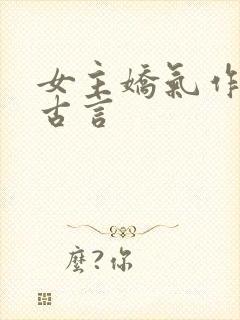 女主嬌氣作
古言
麼?你